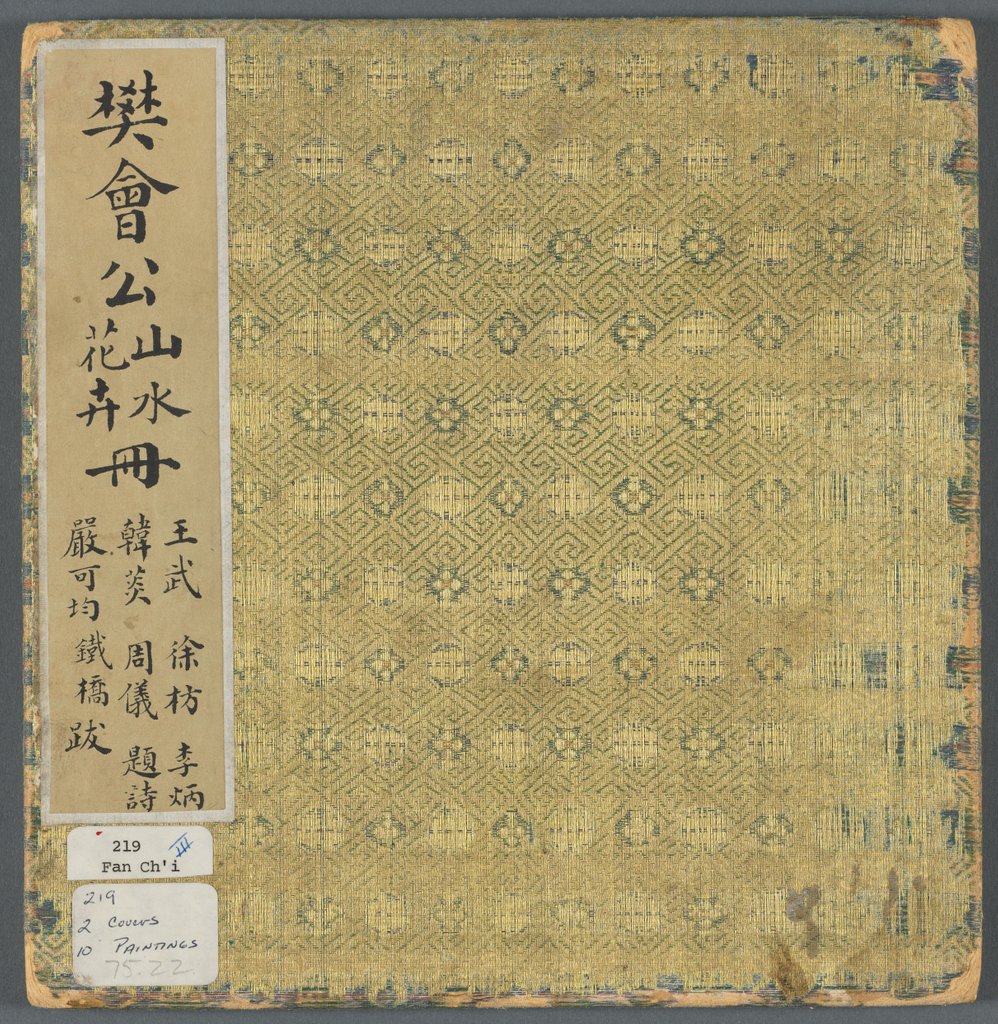 樊會公山水花卉冊
王武 徐枋 李炳
韓菼 周儀 題詩
嚴可均 鐵橋 跋
219 III
Fan Ch'i
219
2 Covers
10 PAINTINGS
75.22